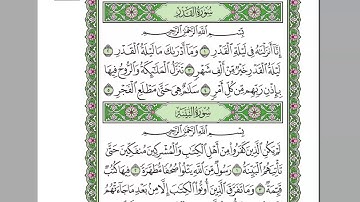 سُورَةُ القَدۡرِ
بِسۡمِ ٱللَّهِ ٱلرَّحۡمَٰنِ ٱلرَّحِيمِ
إِنَّآ أَنزَلۡنَٰهُ فِي لَيۡلَةِ ٱلۡقَدۡرِ ١ وَمَآ أَدۡرَىٰكَ مَا لَيۡلَةُ ٱلۡقَدۡرِ ٢
لَيۡلَةُ ٱلۡقَدۡرِ خَيۡرٞ مِّنۡ أَلۡفِ شَهۡرٖ ٣ تَنَزَّلُ ٱلۡمَلَٰٓئِكَةُ وَٱلرُّوحُ فِيهَا
بِإِذۡنِ رَبِّهِم مِّن كُلِّ أَمۡرٖ ٤ سَلَٰمٌ هِيَ حَتَّىٰ مَطۡلَعِ ٱلۡفَجۡرِ ٥
سُورَةُ البَيِّنَةِ
بِسۡمِ ٱللَّهِ ٱلرَّحۡمَٰنِ ٱلرَّحِيمِ
لَمۡ يَكُنِ ٱلَّذِينَ كَفَرُواْ مِنۡ أَهۡلِ ٱلۡكِتَٰبِ وَٱلۡمُشۡرِكِينَ مُنفَكِّينَ حَتَّىٰ
تَأۡتِيَهُمُ ٱلۡبَيِّنَةُ ١ رَسُولٞ مِّنَ ٱللَّهِ يَتۡلُواْ صُحُفٗا مُّطَهَّرَةٗ ٢ فِيهَا كُتُبٞ
قَيِّمَةٞ ٣ وَمَا تَفَرَّقَ ٱلَّذِينَ أُوتُواْ ٱلۡكِتَٰبَ إِلَّا مِنۢ بَعۡدِ مَا جَآءَتۡهُمُ